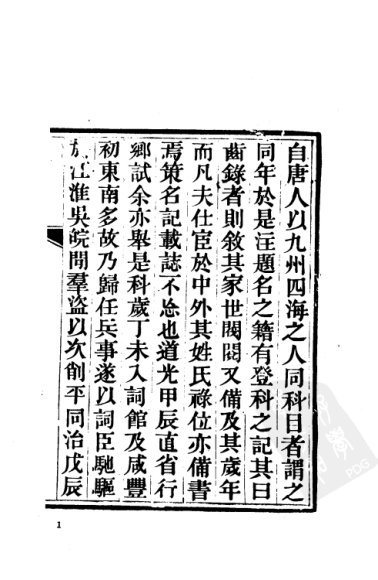 自唐人以九州四海之人同科目者謂之
同年於是注題名之籍有登科之記其曰
齒錄者則敘其家世閥閱又備及其歲年
而凡夫仕宦於中外其姓氏祿位亦備書
焉策名記載誌不忘也道光甲辰直省行
鄉試余亦舉是科歲丁未入詞館及咸豐
初東南多故乃歸任兵事遂以詞臣馳驅
於江淮吳皖間羣盜以次削平同治戊辰
1
PDG